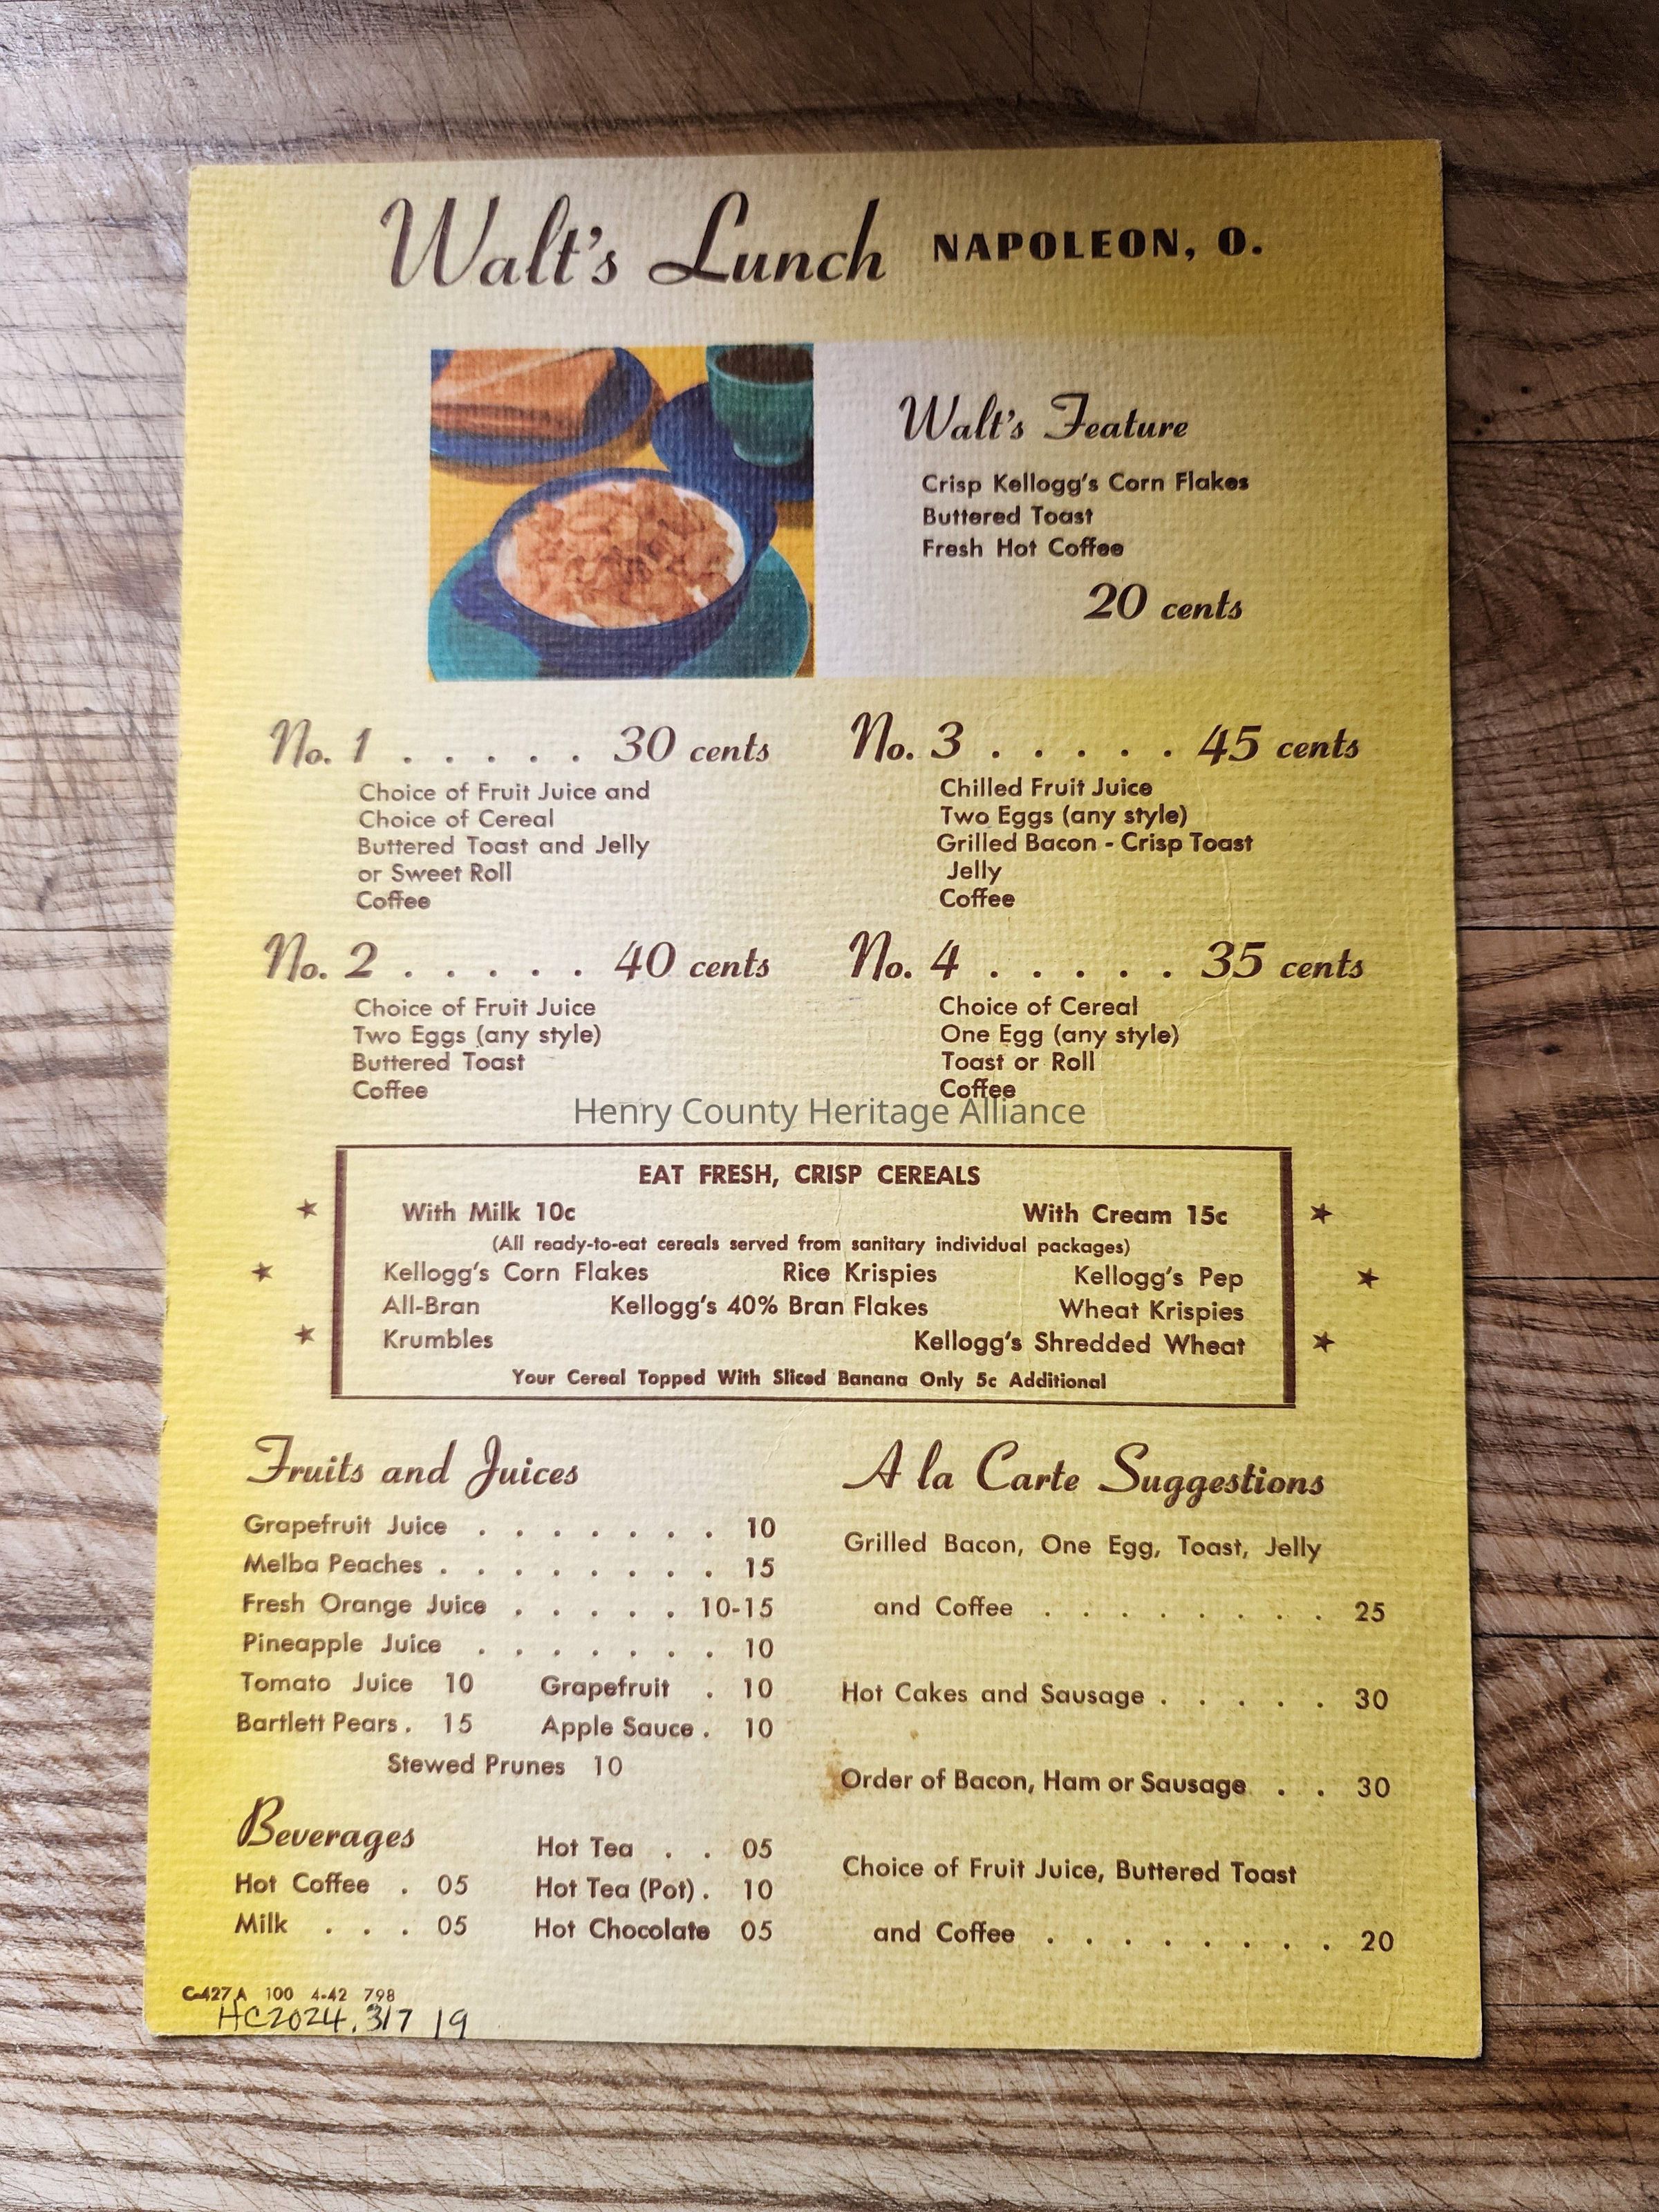 Walt's Lunch NAPOLEON, O.
Walt's Feature
Crisp Kellogg's Corn Flakes
Buttered Toast
Fresh Hot Coffee
20 cents
No. 1 . . . . . 30 cents
Choice of Fruit Juice and
Choice of Cereal
Buttered Toast and Jelly
or Sweet Roll
Coffee
No. 2 . . . . . 40 cents
Choice of Fruit Juice
Two Eggs (any style)
Buttered Toast
Coffee
No. 3 . . . . . 45 cents
Chilled Fruit Juice
Two Eggs (any style)
Grilled Bacon - Crisp Toast
Jelly
Coffee
No. 4 . . . . . 35 cents
Choice of Cereal
One Egg (any style)
Toast or Roll
Coffee
Henry County Heritage Alliance
EAT FRESH, CRISP CEREALS
With Milk 10c With Cream 15c
(All ready-to-eat cereals served from sanitary individual packages)
Kellogg's Corn Flakes Rice Krispies Kellogg's Pep
All-Bran Kellogg's 40% Bran Flakes Wheat Krispies
Krumbles Kellogg's Shredded Wheat
Your Cereal Topped With Sliced Banana Only 5c Additional
Fruits and Juices
Grapefruit Juice . . . . . . . 10
Melba Peaches . . . . . . . . 15
Fresh Orange Juice . . . . . 10-15
Pineapple Juice . . . . . . . 10
Tomato Juice 10 Grapefruit . 10
Bartlett Pears . 15 Apple Sauce . 10
Stewed Prunes 10
Beverages
Hot Coffee . 05
Milk . . . 05
Hot Tea . . 05
Hot Tea (Pot) . 10
Hot Chocolate 05
A la Carte Suggestions
Grilled Bacon, One Egg, Toast, Jelly
and Coffee . . . . . . . . 25
Hot Cakes and Sausage . . . . . 30
Order of Bacon, Ham or Sausage . . 30
Choice of Fruit Juice, Buttered Toast
and Coffee . . . . . . . . 20
C-427A 100 4-42 798
HC2024.317 19